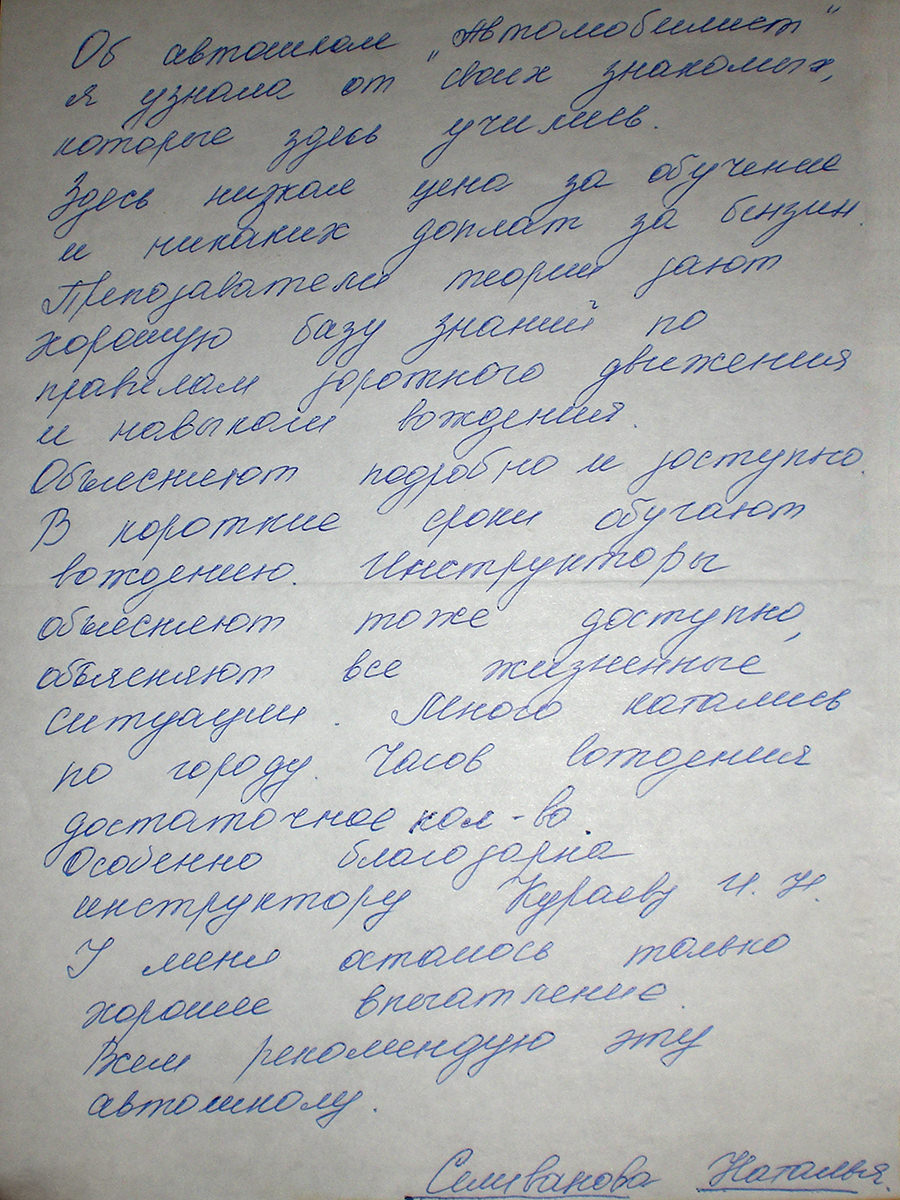 Об автошколе "Автомобилист"
я узнала от своих знакомых,
которые здесь учились.
Здесь низкая цена за обучение
и никаких доплат за бензин.
Преподаватели теории дают
хорошую базу знаний по
правилам дорожного движения
и навыкам вождения.
Объясняют подробно и доступно.
В короткие сроки обучают
вождению. Инструкторы
объясняют тоже доступно,
объясняют все жизненные
ситуации. Много катались
по городу. Часов вождения
достаточное кол-во.
Особенно благодарна
инструктору Кураеву И. Н.
У меня осталось только
хорошее впечатление.
Всем рекомендую эту
автошколу.
Селиванова Наталья.